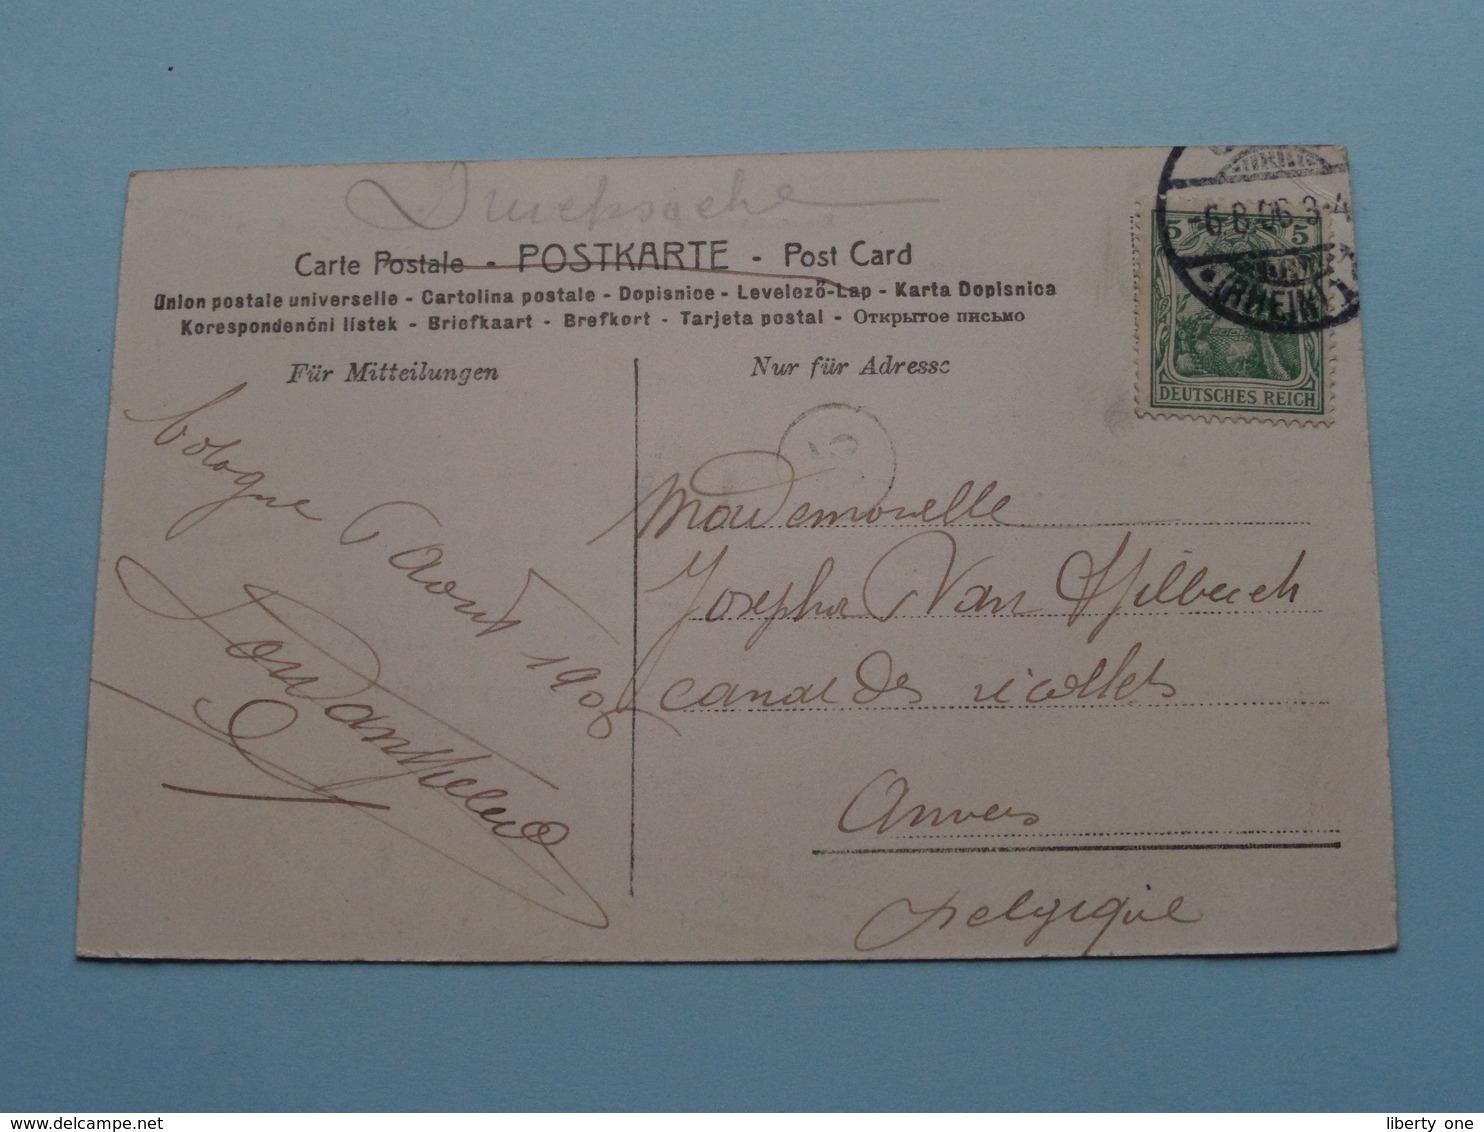 Drucksache
Carte Postale - POSTKARTE - Post Card
Union postale universelle - Cartolina postale - Dopisnice - Levelező-Lap - Karta Dopisnica
Korespondenční lístek - Briefkaart - Brefkort - Tarjeta postal - Открытое письмо
Für Mitteilungen
Nur für Adresse
5 5
-6 8 06 3-4
(RHEIN) 1
DEUTSCHES REICH
Cologne 6 Aout 1906
Mademoiselle
Josepha Van Hilbeeck
canal des récollets
Anvers
Belgique
delcampe.net
liberty one